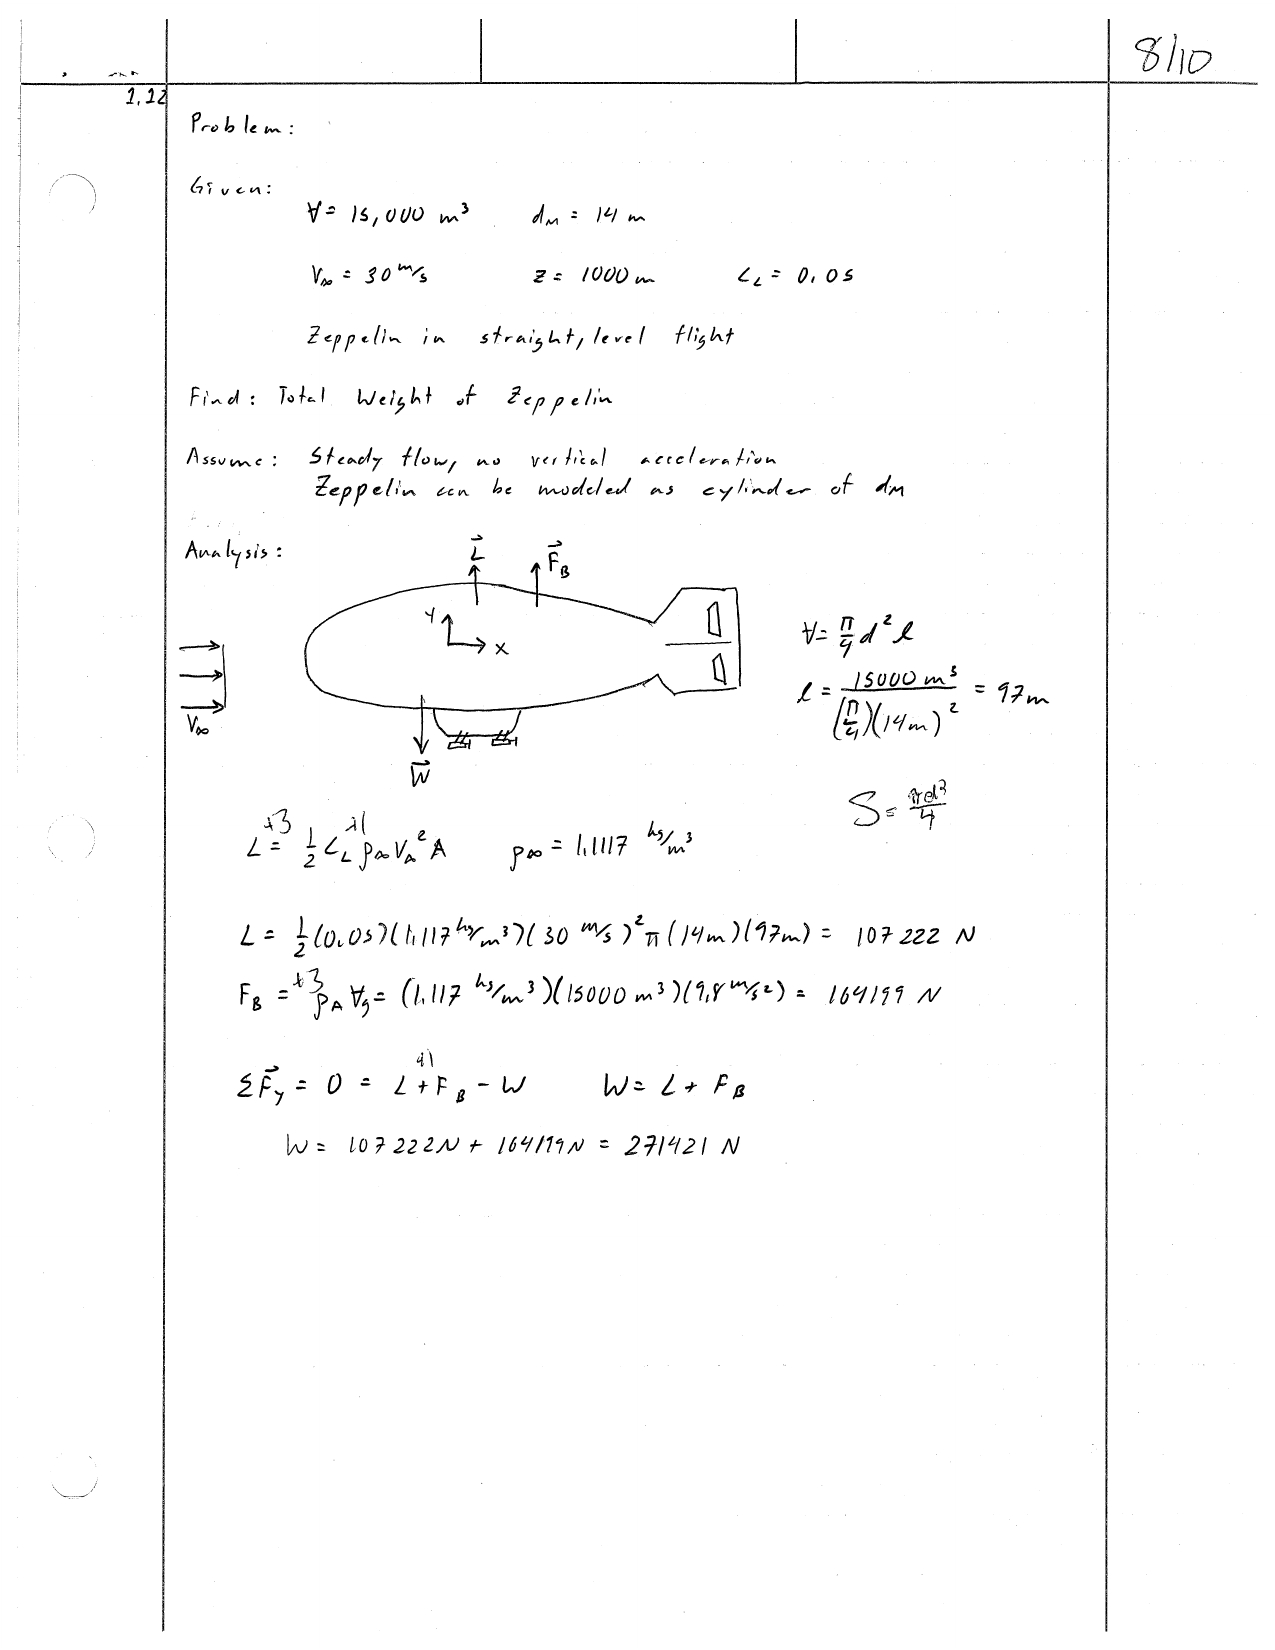 8/10
1.12
Problem:
Given:
V = 15,000 m³ d_M = 14 m
V∞ = 30 m/s z = 1000 m C_L = 0.05
Zeppelin in straight, level flight
Find: Total Weight of Zeppelin
Assume: Steady flow, no vertical acceleration
Zeppelin can be modeled as cylinder of d_M
Analysis:
L F_B
Y
X
V∞
W
V = π/4 d² l
l = 15000 m³ / (π/4)(14m)² = 97m
S = πd²/4
+3 +1
L = 1/2 C_L ρ∞ V∞² A ρ∞ = 1.1117 kg/m³
L = 1/2 (0.05)(1.117 kg/m³)(30 m/s)² π (14m)(97m) = 107222 N
+3
F_B = ρ_A V g = (1.117 kg/m³)(15000 m³)(9.8 m/s²) = 164199 N
+1
ΣF_y = 0 = L + F_B - W W = L + F_B
W = 107222N + 164199N = 271421 N